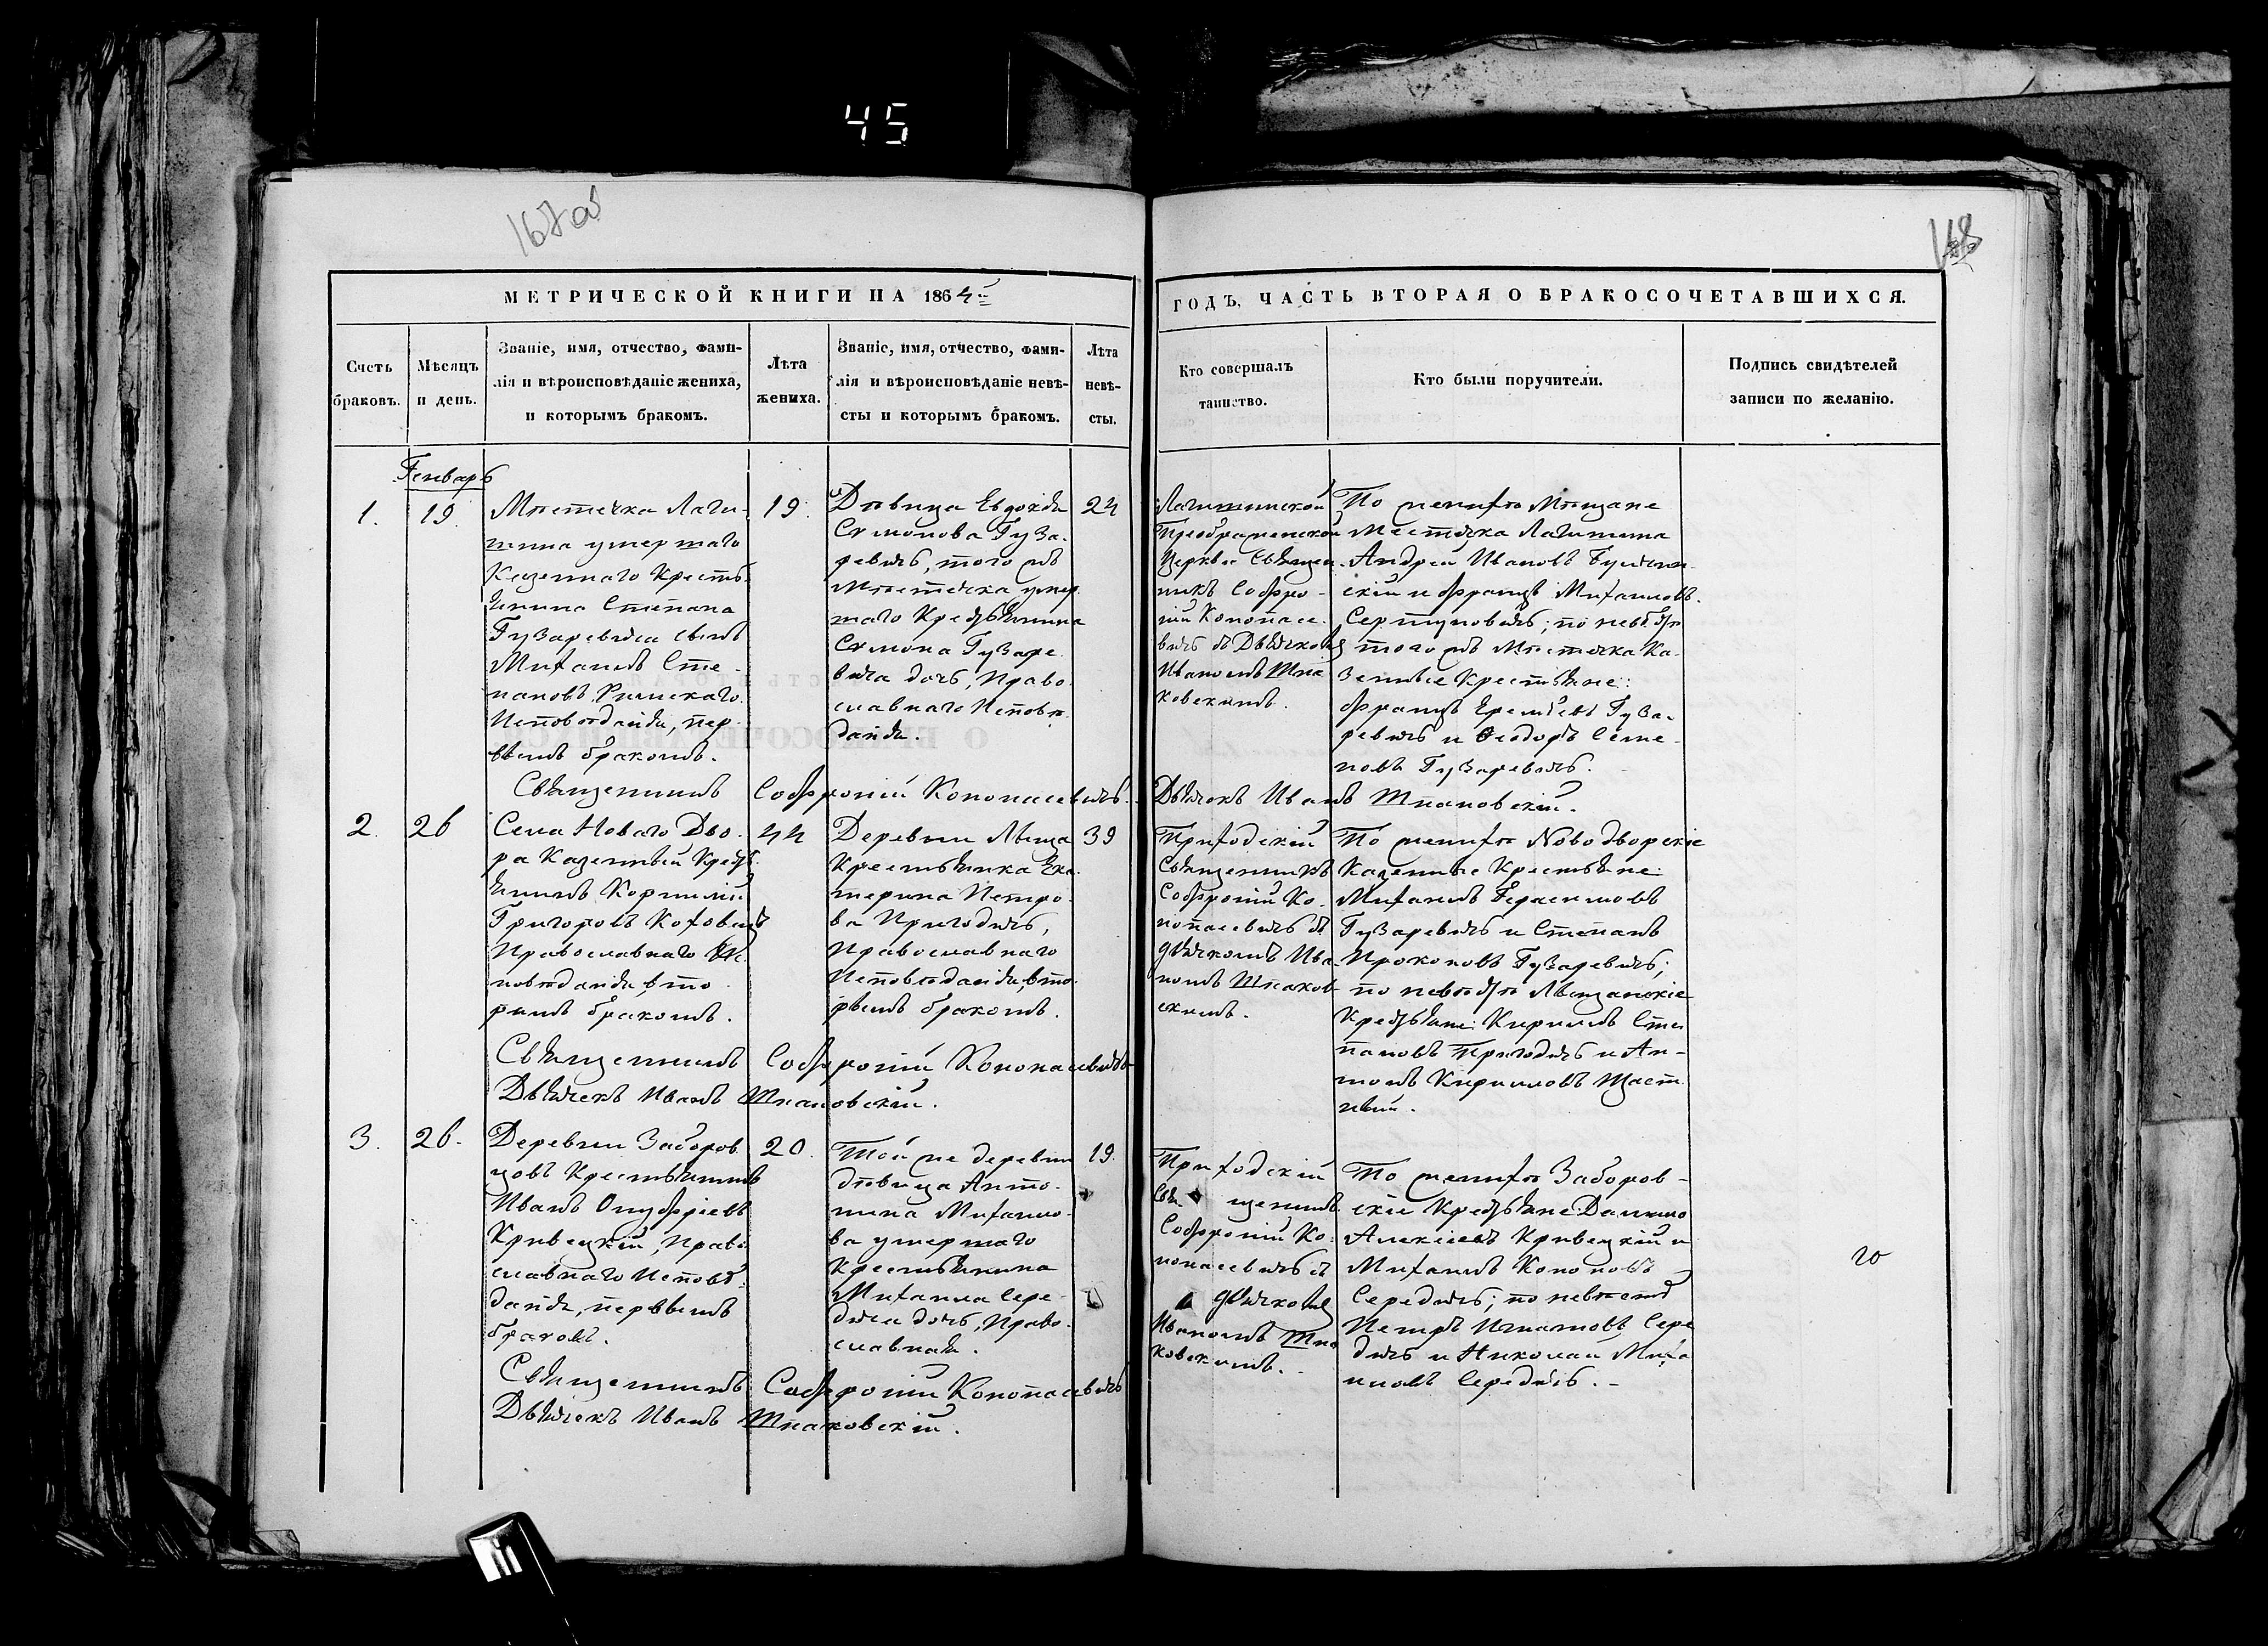 45
167об
168
МЕТРИЧЕСКОЙ КНИГИ НА 1864й
ГОДЪ, ЧАСТЬ ВТОРАЯ О БРАКОСОЧЕТАВШИХСЯ.
Счетъ
браковъ.
Мѣсяцъ
и день.
Званіе, имя, отчество, фами-
лія и вѣроисповѣданіе жениха,
и которымъ бракомъ.
Лѣта
жениха.
Званіе, имя, отчество, фами-
лія и вѣроисповѣданіе невѣ-
сты и которымъ бракомъ.
Лѣта
невѣ-
сты.
Кто совершалъ
таинство.
Кто были поручители.
Подпись свидѣтелей
записи по желанію.
Генварь
1.
19.
Мѣстечка Логи-
шина умершаго
Казеннаго Кресть-
янина Степана
Гузаревича сынъ
Михаилъ Сте-
пановъ Римскаго
Исповѣданія, пер-
вымъ бракомъ.
19.
Дѣвица Евдокія
Симонова Гуза-
ревичъ, того жъ
Мѣстечка умер-
шаго Крестьянина
Симона Гузаре-
вича дочь, Право-
славнаго Исповѣ-
данія.
24
Логишинской
Преображенской
Церкви Священ-
никъ Софро-
ній Конопасе-
вичъ съ Дьячкомъ
Иваномъ Шпа
ковскимъ.
По женихѣ Мѣщане
Местечка Логишина
Андрей Ивановъ
скій и Францъ Михаиловъ
по невѣстѣ
того жъ Местечка Ка-
зенные Крестьяне:
Францъ Гуза-
ревичъ и Ѳеодоръ Семе-
новъ Гузаревичъ.
Священникъ Софроній Конопасевичъ.
Дьячекъ Иванъ Шпаковскій.
2.
26
Села Новаго Дво-
ра Казенный Кресть-
янинъ Корнилій
Григоровъ Коховецъ
Православнаго Ис-
повѣданія, вто-
рымъ бракомъ.
44
Деревни Лыща
Крестьянка Ека-
терина Петро-
ва Пригодичъ,
Православнаго
Исповѣданія, вто-
рымъ бракомъ.
39
Приходскій
Священникъ
Софроній Ко-
нопасевичъ съ
дьячкомъ Ива-
номъ Шпаков-
скимъ.
По женихѣ Новодворскіе
Казенные Крестьяне:
Михаилъ Герасимовъ
Гузаревичъ и Степанъ
Прокоповъ Гузаревичъ;
по невѣстѣ Лыщанскіе
Крестьяне: Кириллъ Сте
пановъ Пригодичъ и Ан-
тонъ Кирилловъ Щаст-
ный.
Священникъ Софроній Конопасевичъ
Дьячекъ Иванъ Шпаковскій.
3.
26.
Деревни Заборов-
цовъ Крестьянинъ
Иванъ Онуфріевъ
Кривецкій, Право-
славнаго Исповѣ-
данія, первымъ
бракомъ.
20.
Той же деревни
дѣвица Анто-
нина Михаило-
ва умершаго
Крестьянина
Михаила Сере-
дича дочь, Право-
славная.
19.
Приходскій
Свя щенникъ
Софроній Ко-
нопасевичъ съ
дьячкомъ
Иваномъ Шпа
ковскимъ.
По женихѣ Заборов-
скіе Крестьяне: Данило
Алексеевъ Кривецкій и
Михаилъ Кононовъ
Середичъ; по невѣстѣ
Петръ Игнатовъ Сере
дичъ и Николай Миха
иловъ Середичъ.
Священникъ Софроній Конопасевичъ
Дьячекъ Иванъ Шпаковскій.